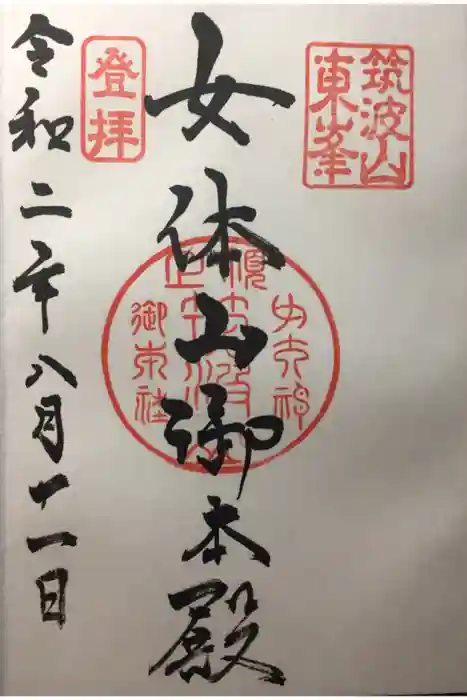 筑波山
東峯
女体山御本殿
登拝
令和二年八月十一日